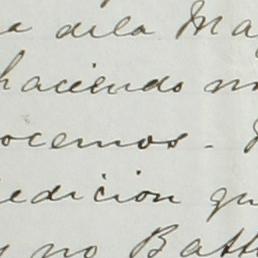 a dela Ma
haciendo no
ocemos.
edicion qu
y no Batt